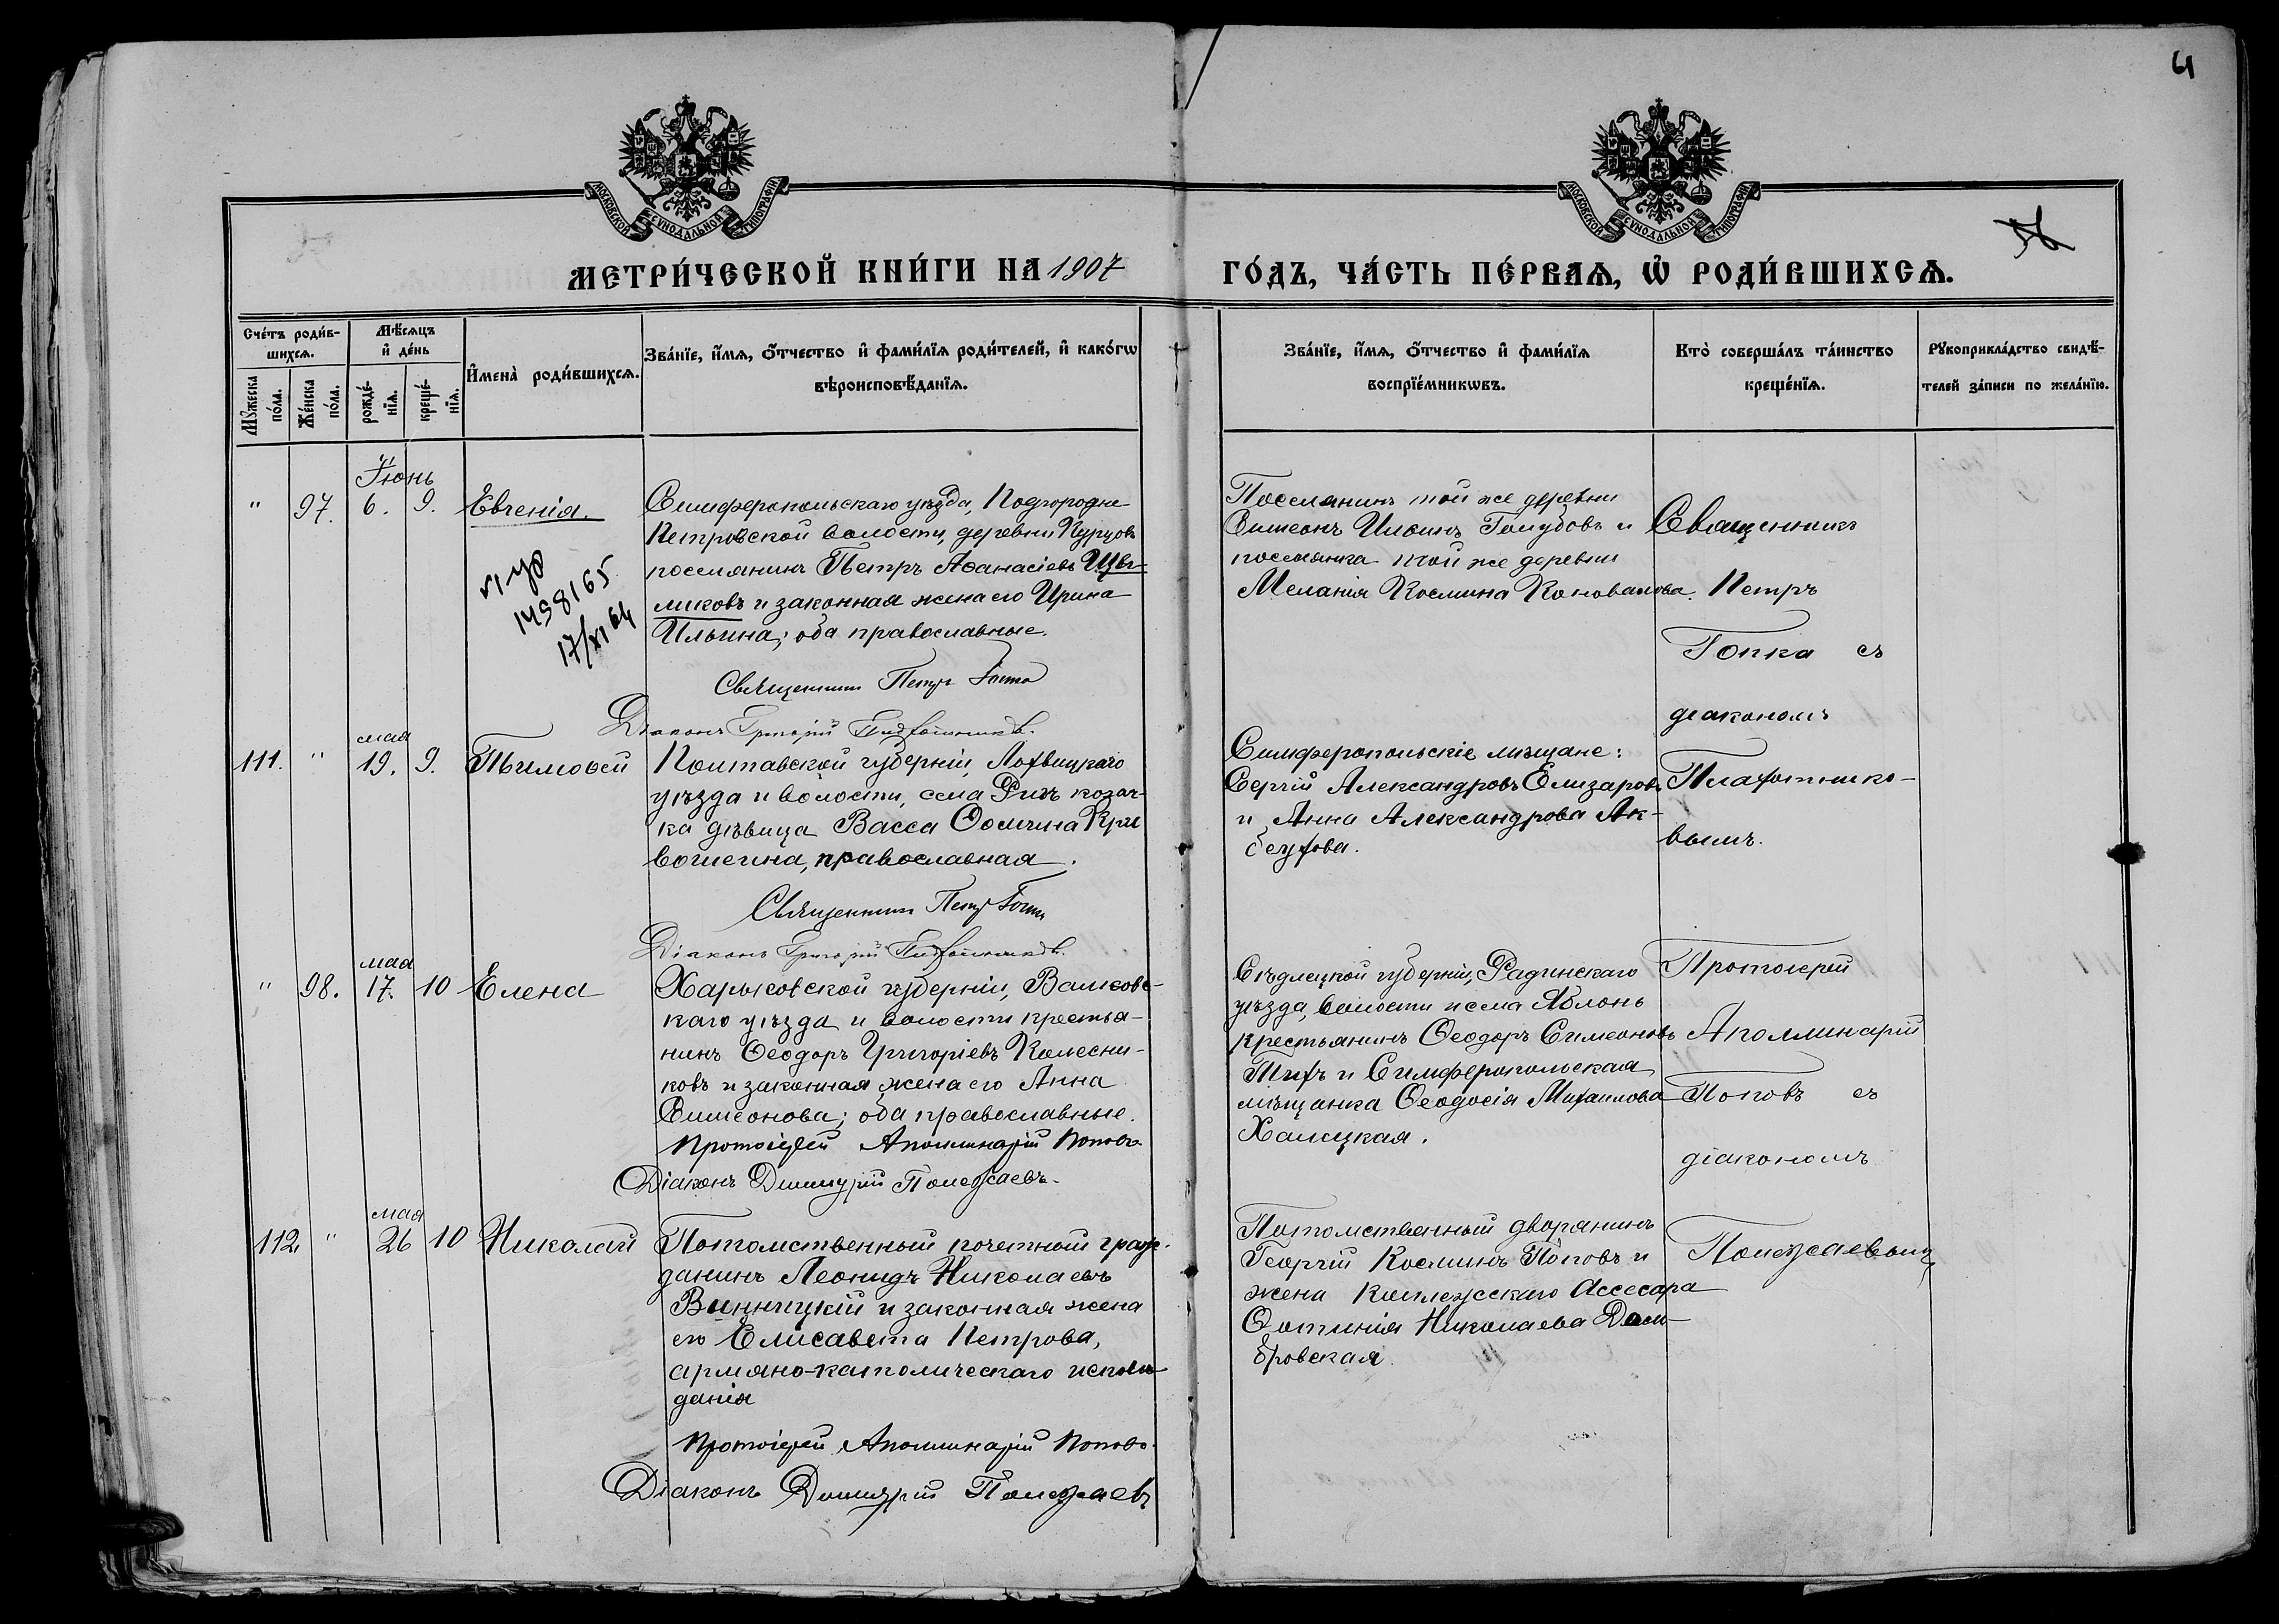 61
56
МОСКОВСКОЙ СѴНОДАЛЬНОЙ ТИПОГРАФІИ
МОСКОВСКОЙ СѴНОДАЛЬНОЙ ТИПОГРАФІИ
МЕТРИ́ЧЕСКОЙ КНИ́ГИ НА 1907 ГО́ДЪ, ЧА́СТЬ ПЕ́РВАѦ, Ѡ҆ РОДИ́ВШИХСѦ.
Сче́тъ роди́в-
шихсѧ.
Мꙋ́жеска по́ла.
Же́нска по́ла.
Мѣ́сѧцъ
и҆ де́нь
рожде́-
нїѧ.
креще́-
нїѧ.
И҆мена̀ роди́вшихсѧ.
Зва́нїе, и҆́мѧ, ѻ҆́тчество и҆ фами́лїѧ роди́телей, и҆ како́гѡ
вѣроисповѣ́данїѧ.
Зва́нїе, и҆́мѧ, ѻ҆́тчество и҆ фами́лїѧ
воспрїе́мникѡвъ.
Кто̀ соверша́лъ та́инство
креще́нїѧ.
Рꙋкоприкла́дство свидѣ́-
телей за́писи по жела́нїю.
Іюнь
" 97. 6. 9. Евгенія.
Симферопольскаго уѣзда, Подгородне-
Петровской волости, деревни Курцовъ
поселянинъ Петръ Аѳанасіевъ Цвѣ-
ликовъ и законная жена его Ирина
Ильина; оба православные.
1498165
17/XI 64
Священникъ Петръ Гопка
Діаконъ Григорій
Поселянинъ той же деревни
Симеонъ Ильинъ Голубовъ и
поселянка той же деревни
Меланія Космина Коновалова.
Священникъ
Петръ
Гопка съ
діакономъ
Плахотнико-
вымъ.
мая
111. " 19. 9. Тимоѳей
Полтавской губерніи, Лохвицкаго
уѣзда и волости, села Ригъ козач-
ка дѣвица Васса Ѳомина Кри
вошеина, православная.
Священникъ Петръ Гопка
Діаконъ Григорій
Симферопольскіе мѣщане:
Сергій Александровъ Елизаровъ
и Анна Александрова Ак-
беухова.
мая
" 98. 17. 10 Елена
Харьковской губерніи, Валковс-
каго уѣзда и волости крестья-
нинъ Ѳеодоръ Григоріевъ Колесни-
ковъ и законная жена его Анна
Симеонова; оба православные.
Протоіерей Аполлинарій Поповъ
Діаконъ Димитрій Полежаевъ.
Сѣдлецкой губерніи, Радинскаго
уѣзда, волости и села Яблонь
крестьянинъ Ѳеодоръ Симеоновъ
Тихъ и Симферопольская
мѣщанка Ѳеодосія Михаилова
Халецкая.
Протоіерей
Аполлинарій
Поповъ съ
діакономъ
Полежаевымъ
мая
112. " 26 10 Николай
Потомственный почетный граж-
данинъ Леонидъ Николаевъ
Винницкій и законная жена
его Елисавета Петрова,
армяно-католическаго исповѣ-
данія
Протоіерей Аполлинарій Поповъ.
Діаконъ Димитрій Полежаевъ
Потомственный дворянинъ
Георгій Косминъ Поповъ и
жена Коллежскаго Ассесора
Фотинія Николаева Дом-
бровская.